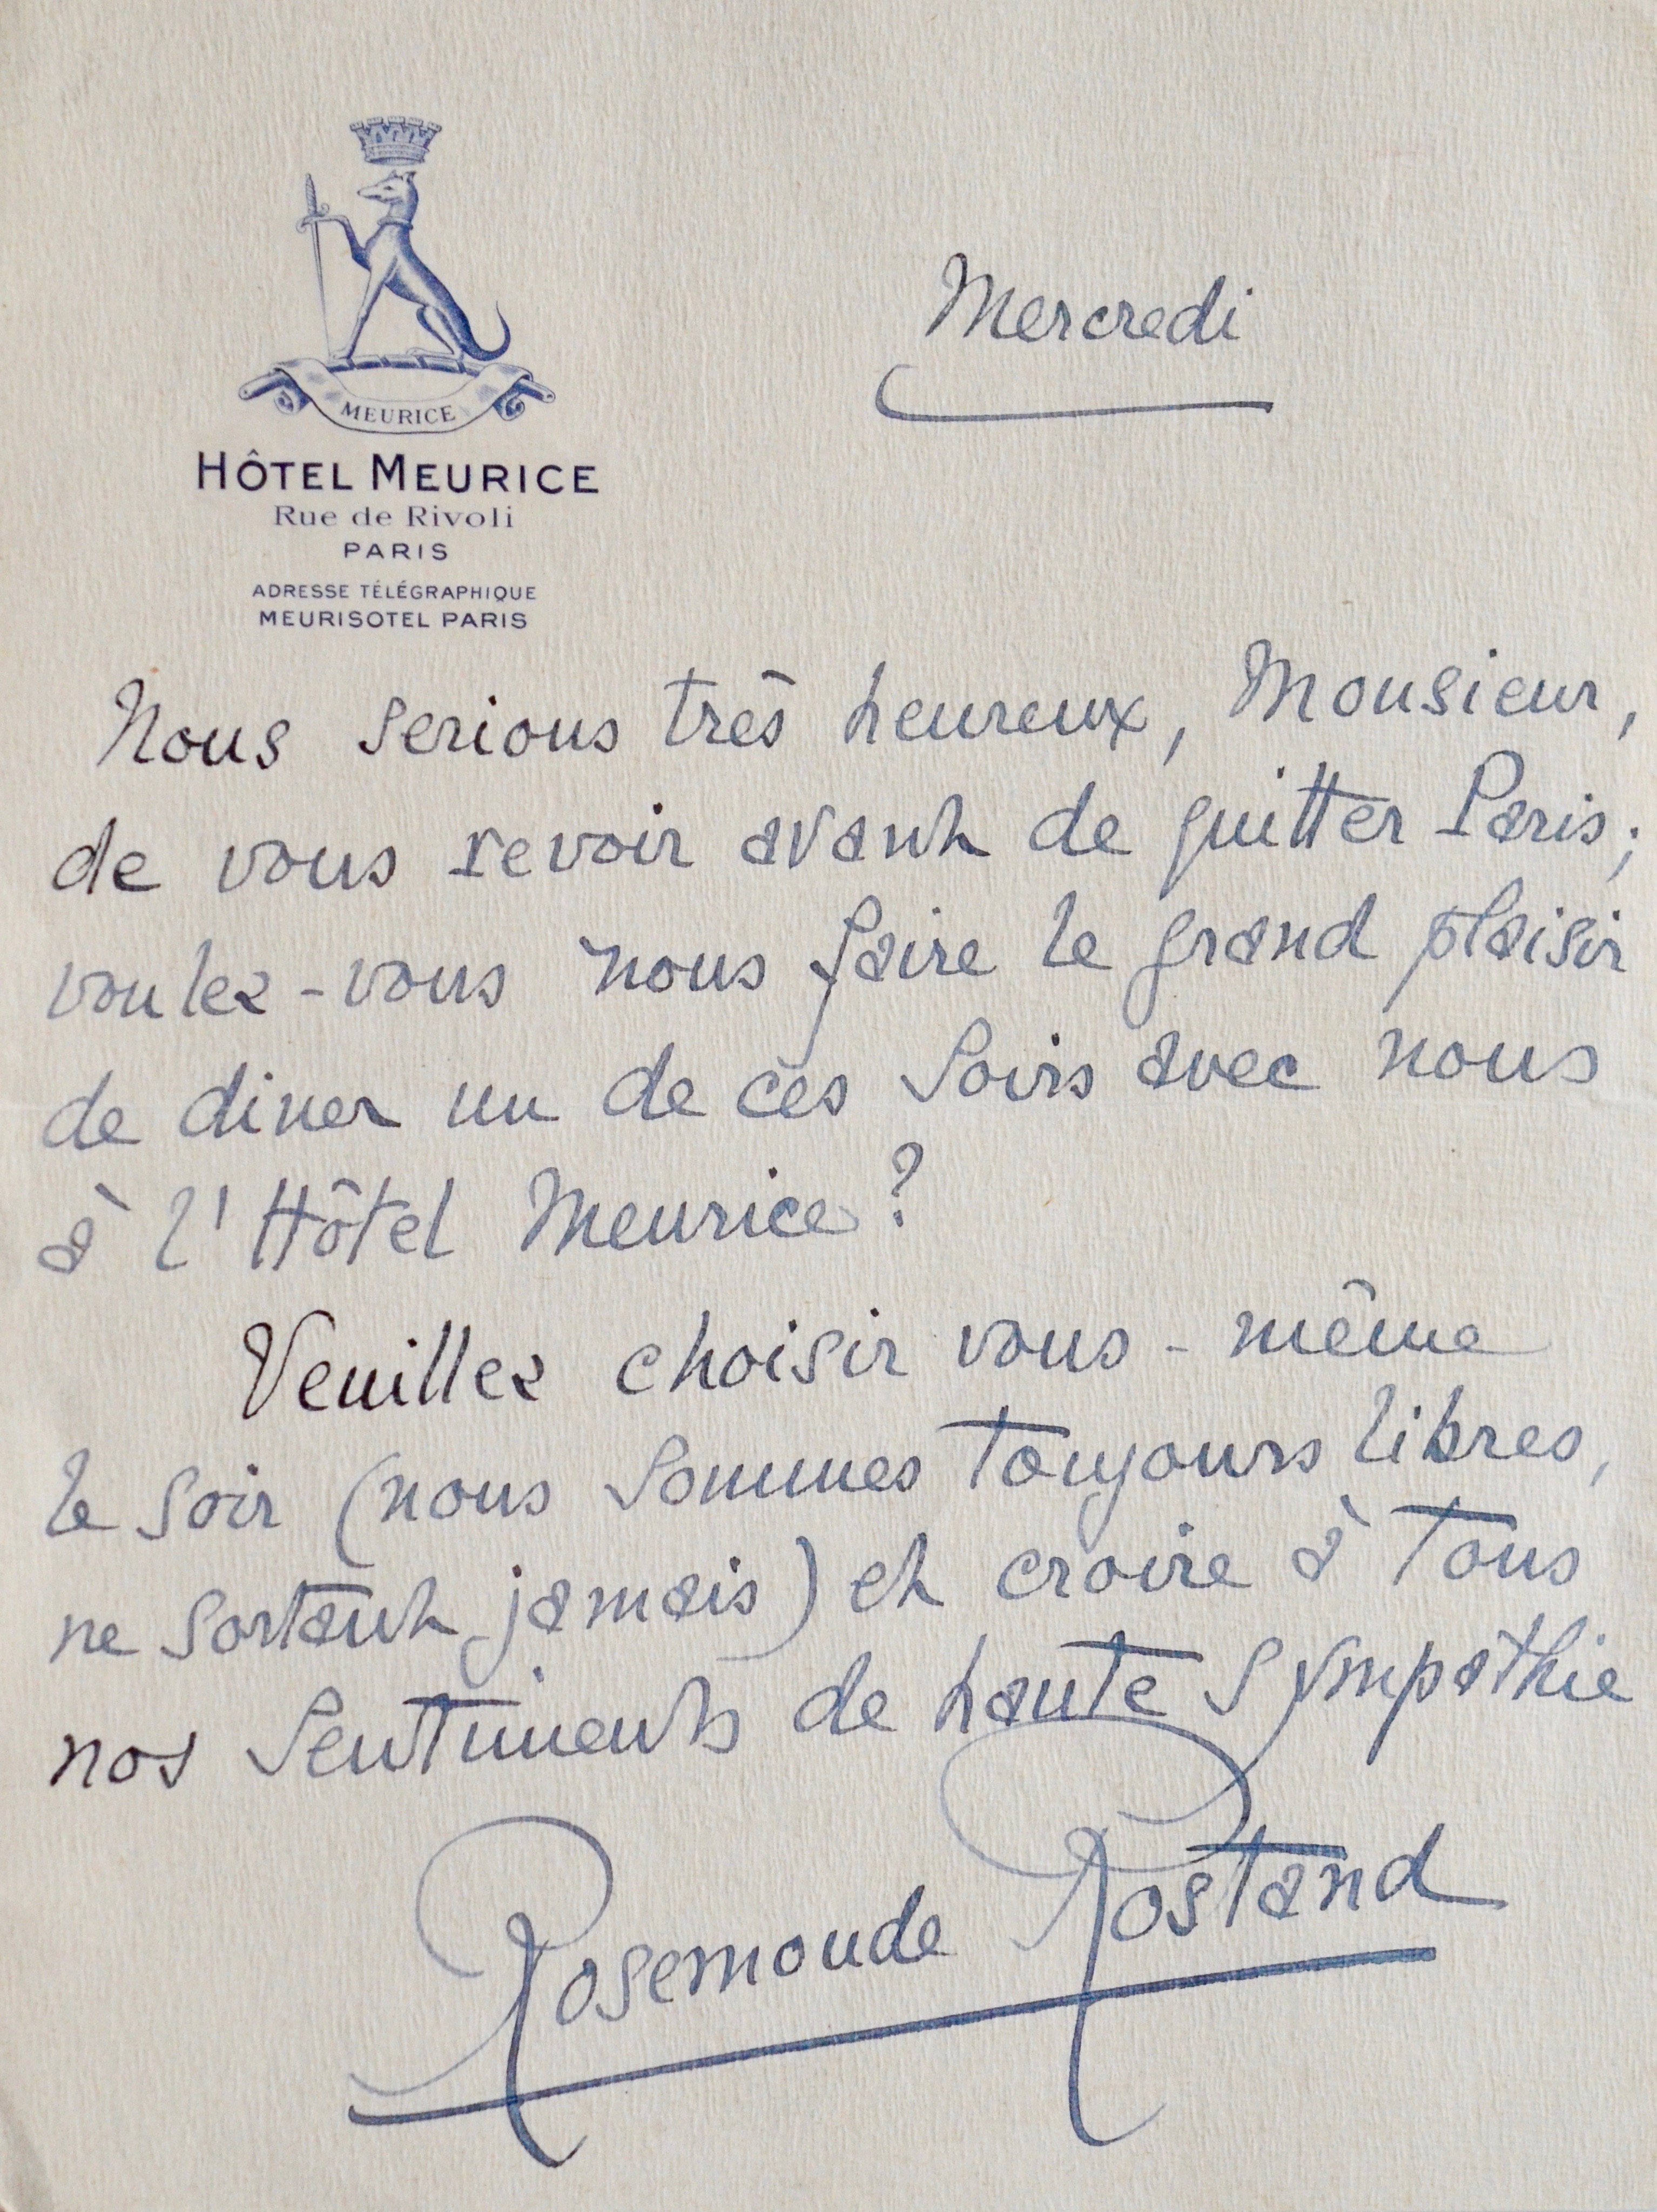 MEURICE
HÔTEL MEURICE
Rue de Rivoli
PARIS
ADRESSE TÉLÉGRAPHIQUE
MEURISOTEL PARIS
Mercredi
Nous serions très heureux, Monsieur,
de vous revoir avant de quitter Paris;
voulez-vous nous faire le grand plaisir
de diner un de ces soirs avec nous
à l'Hôtel Meurice?
Veuillez choisir vous-même
le soir (nous sommes toujours libres,
ne sortant jamais) et croire à tous
nos sentiments de haute sympathie
Rosemonde Rostand